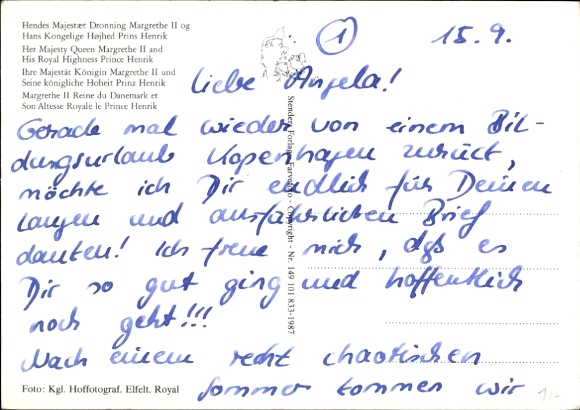 Hendes Majestæt Dronning Margrethe II og
Hans Kongelige Højhed Prins Henrik
Her Majesty Queen Margrethe II and
His Royal Highness Prince Henrik
Ihre Majestät Königin Margrethe II und
Seine königliche Hoheit Prinz Henrik
Margrethe II Reine du Danemark et
Son Altesse Royale le Prince Henrik
1 15.9.
Liebe Angela!
Gerade mal wieder von einem Bil-
dungsurlaub Kopenhagen zurück,
möchte ich Dir endlich für Deinen
langen und ausführlichen Brief
danken! Ich freue mich, daß es
Dir so gut ging und hoffentlich
noch geht!!!
Nach einem recht chaotischen
Sommer kommen wir
Foto: Kgl. Hoffotograf. Elfelt. Royal
Stenders Forlag - Copyright - Nr. 149 101 833-1987
1,-